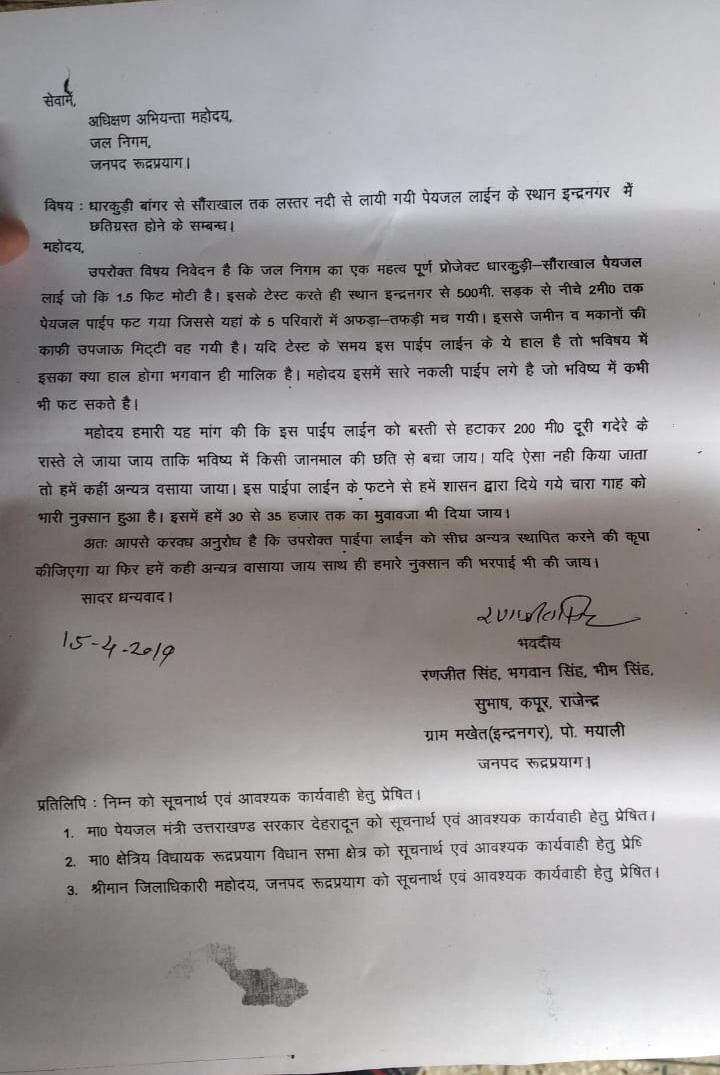 सेवामें,
अधिक्षण अभियन्ता महोदय,
जल निगम,
जनपद रूद्रप्रयाग।
विषय : धारकुड़ी बांगर से सौंराखाल तक लस्तर नदी से लायी गयी पेयजल लाईन के स्थान इन्द्रनगर में
छतिग्रस्त होने के सम्बन्ध।
महोदय,
उपरोक्त विषय निवेदन है कि जल निगम का एक महत्व पूर्ण प्रोजेक्ट धारकुड़ी–सौंराखाल पेयजल
लाई जो कि 1.5 फिट मोटी है। इसके टेस्ट करते ही स्थान इन्द्रनगर से 500मी. सड़क से नीचे 2मी0 तक
पेयजल पाईप फट गया जिससे यहां के 5 परिवारों में अफड़ा–तफड़ी मच गयी। इससे जमीन व मकानों की
काफी उपजाऊ मिट्टी वह गयी है। यदि टेस्ट के समय इस पाईप लाईन के ये हाल है तो भविषय में
इसका क्या हाल होगा भगवान ही मालिक है। महोदय इसमें सारे नकली पाईप लगे है जो भविष्य में कभी
भी फट सकते है।
महोदय हमारी यह मांग की कि इस पाईप लाईन को बस्ती से हटाकर 200 मी0 दूरी गदेरे के
रास्ते ले जाया जाय ताकि भविष्य में किसी जानमाल की छति से बचा जाय। यदि ऐसा नही किया जाता
तो हमें कहीं अन्यत्र वसाया जाया। इस पाईपा लाईन के फटने से हमें शासन द्वारा दिये गये चारा गाह को
भारी नुक्सान हुआ है। इसमें हमें 30 से 35 हजार तक का मुवावजा भी दिया जाय।
अतः आपसे करवध अनुरोध है कि उपरोक्त पाईपा लाईन को सीघ्र अन्यत्र स्थापित करने की कृपा
कीजिएगा या फिर हमें कही अन्यत्र वासाया जाय साथ ही हमारे नुक्सान की भरपाई भी की जाय।
सादर धन्यवाद।
रणजीत सिंह
15-4-2019
भवदीय
रणजीत सिंह, भगवान सिंह, भीम सिंह,
सुभाष, कपूर, राजेन्द्र
ग्राम मखेत(इन्द्रनगर), पो. मयाली
जनपद रूद्रप्रयाग।
प्रतिलिपि : निम्न को सूचनार्थ एवं आवश्यक कार्यवाही हेतु प्रेषित।
1. मा0 पेयजल मंत्री उत्तराखण्ड सरकार देहरादून को सूचनार्थ एवं आवश्यक कार्यवाही हेतु प्रेषित।
2. मा0 क्षेत्रिय विधायक रूद्रप्रयाग विधान सभा क्षेत्र को सूचनार्थ एवं आवश्यक कार्यवाही हेतु प्रेषि
3. श्रीमान जिलाधिकारी महोदय, जनपद रूद्रप्रयाग को सूचनार्थ एवं आवश्यक कार्यवाही हेतु प्रेषित।